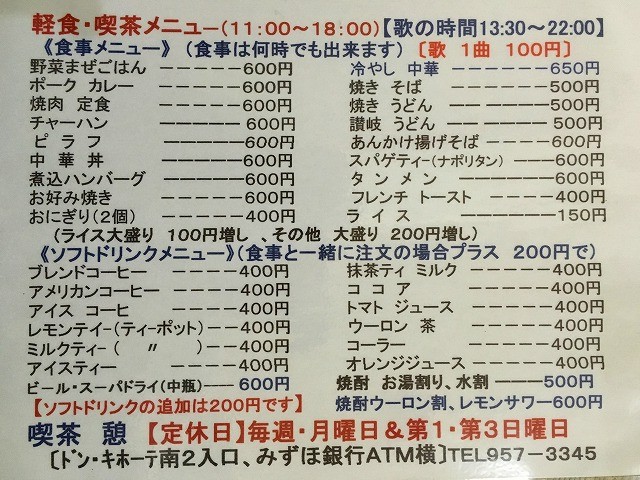 軽食・喫茶メニュー(11:00～18:00)【歌の時間13:30～22:00】
《食事メニュー》 (食事は何時でも出来ます) 〔歌 1曲 100円〕
野菜まぜごはん －－－－－600円 冷やし 中華 －－－－－－650円
ポーク カレー －－－－－600円 焼き そば －－－－－－500円
焼肉 定食 －－－－－600円 焼き うどん －－－－－500円
チャーハン －－－－－600円 讃岐 うどん －－－－－500円
ピ ラ フ －－－－－600円 あんかけ揚げそば －－－－600円
中 華 丼 －－－－－600円 スパゲティ－(ナポリタン) －－－600円
煮込ハンバーグ －－－－－600円 タ ン メ ン －－－－－－600円
お好み焼き －－－－－600円 フレンチ トースト －－－－400円
おにぎり(2個) －－－－400円 ラ イ ス －－－－－－150円
(ライス大盛り 100円増し 、その他 大盛り 200円増し)
《ソフトドリンクメニュー》(食事と一緒に注文の場合プラス 200円で)
ブレンドコーヒー －－－－400円 抹茶ティ ミルク －－－－－400円
アメリカンコーヒー －－－400円 コ コ ア －－－－－400円
アイス コーヒ －－－－400円 トマト ジュース －－－－－400円
レモンテイ－(ティーポット)－－－400円 ウーロン 茶 －－－－－400円
ミルクティ－( 〃 )－－－400円 コーラー －－－－－400円
アイスティー －－－－400円 オレンジジュース －－－－－400円
ビール・スーパドライ(中瓶)－－－ 600円 焼酎 お湯割り、水割 －－－－500円
【ソフトドリンクの追加は200円です】 焼酎ウーロン割、レモンサワー600円
喫茶 憩 【定休日】毎週・月曜日＆第1・第3日曜日
〔ドン・キホーテ南2入口、みずほ銀行ATM横〕TEL957－3345